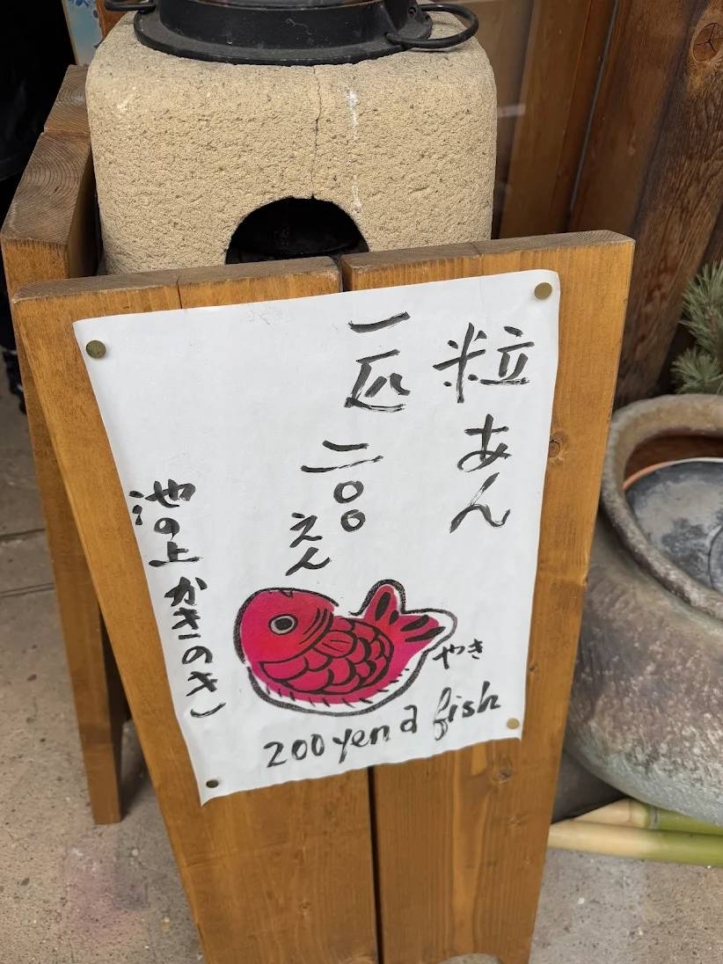 粒あん
一匹
二〇〇
えん
やき
池の上 かきのき
200 yen a fish